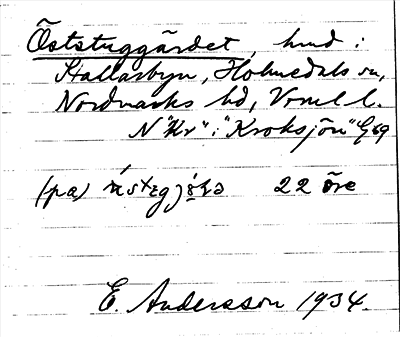 Öststuggärdet, hmd i
Stallarbyn, Holmedals sn,
Nordmarks hd, Vrml l.
N "Kr" i "Kroksjön" G69
(pa) 22 öre
E. Andersson 1934.